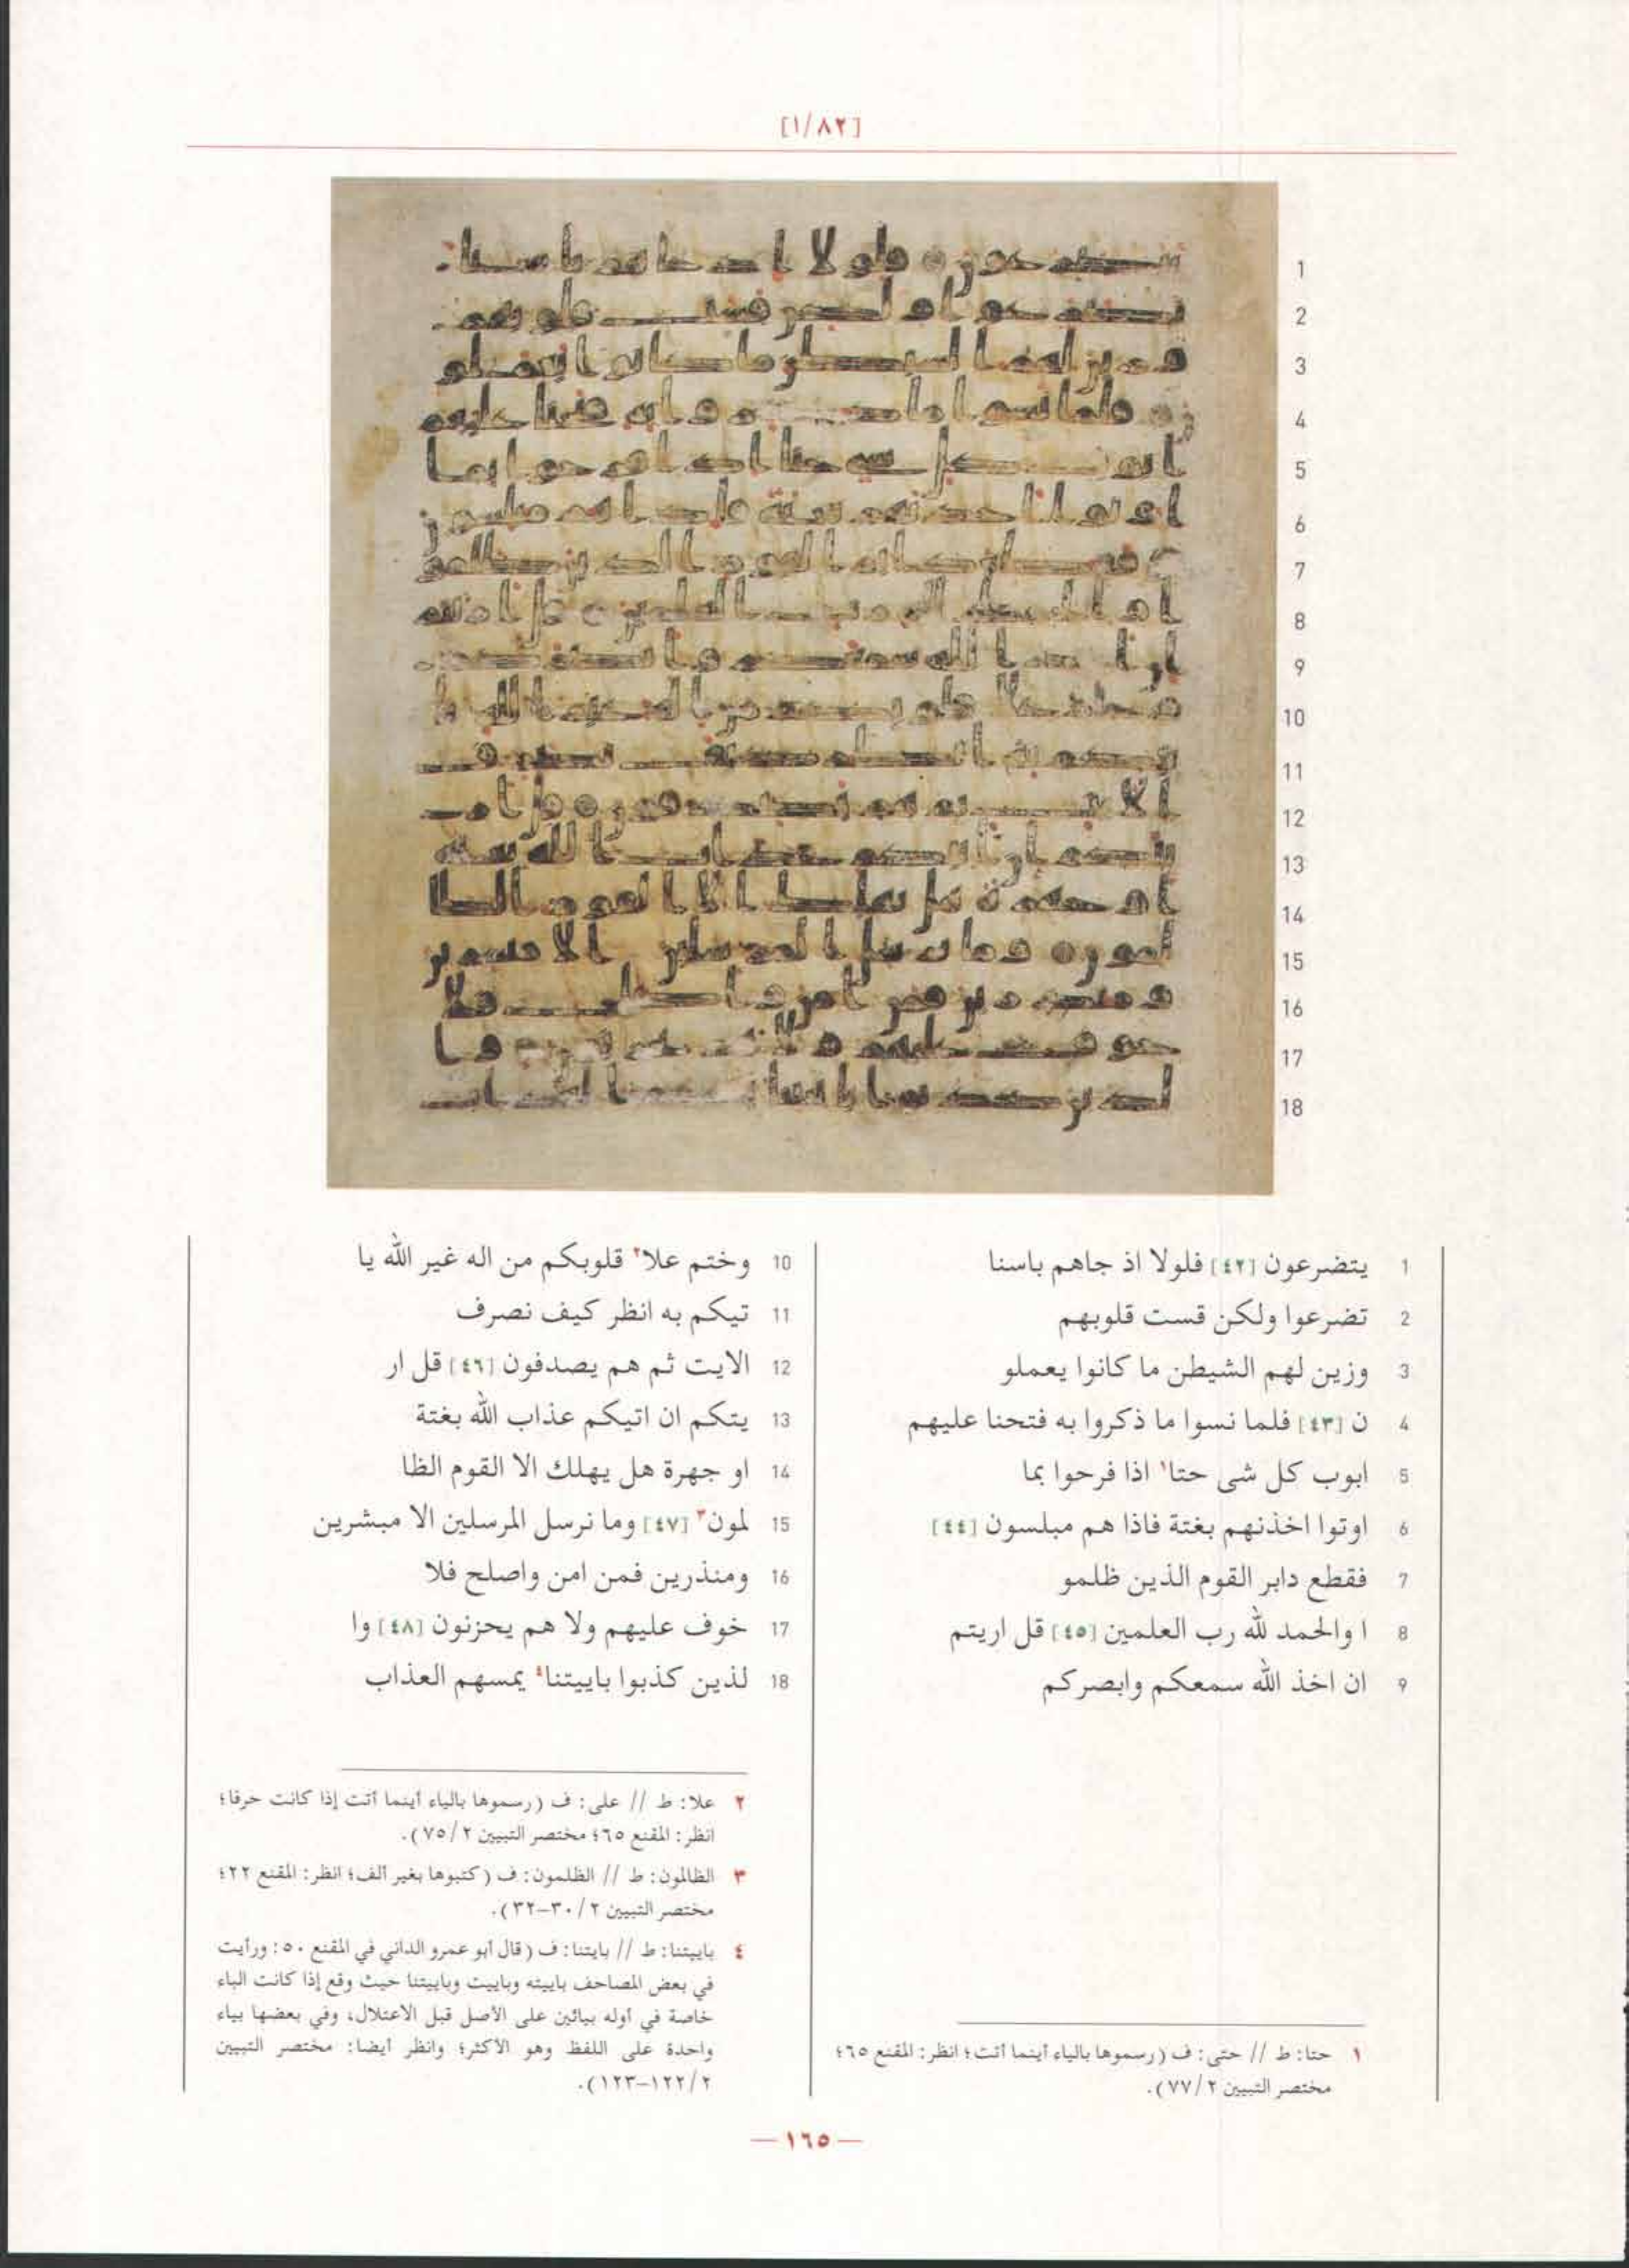 [١/٨٢]
1 يتضرعون [٤٢] فلولا اذ جاهم باسنا
2 تضرعوا ولكن قست قلوبهم
3 وزين لهم الشيطن ما كانوا يعملو
4 ن [٤٣] فلما نسوا ما ذكروا به فتحنا عليهم
5 ابوب كل شى حتا١ اذا فرحوا بما
6 اوتوا اخذنهم بغتة فاذا هم مبلسون [٤٤]
7 فقطع دابر القوم الذين ظلمو
8 ا والحمد لله رب العلمين [٤٥] قل اريتم
9 ان اخذ الله سمعكم وابصركم
١ حتا: ط // حتى: ف (رسموها بالياء أينما أتت؛ انظر: المقنع ٦٥؛
مختصر التبيين ٢/ ٧٧).
10 وختم علا٢ قلوبكم من اله غير الله يا
11 تيكم به انظر كيف نصرف
12 الايت ثم هم يصدفون [٤٦] قل ار
13 يتكم ان اتيكم عذاب الله بغتة
14 او جهرة هل يهلك الا القوم الظا
15 لمون٣ [٤٧] وما نرسل المرسلين الا مبشرين
16 ومنذرين فمن امن واصلح فلا
17 خوف عليهم ولا هم يحزنون [٤٨] وا
18 لذين كذبوا باييتنا٤ يمسهم العذاب
٢ علا: ط // على: ف (رسموها بالياء أينما أتت إذا كانت حرفا؛
انظر: المقنع ٦٥؛ مختصر التبيين ٢/ ٧٥).
٣ الظالمون: ط // الظلمون: ف (كتبوها بغير ألف؛ انظر: المقنع ٢٢؛
مختصر التبيين ٢/ ٣٠-٣٢).
٤ باييتنا: ط // بايتنا: ف (قال أبو عمرو الداني في المقنع ٥٠: ورأيت
في بعض المصاحف باييته وباييت وباييتنا حيث وقع إذا كانت الباء
خاصة في أوله بيائين على الأصل قبل الاعتلال، وفي بعضها بياء
واحدة على اللفظ وهو الأكثر؛ وانظر أيضا: مختصر التبيين
٢/ ١٢٢-١٢٣).
— ١٦٥ —